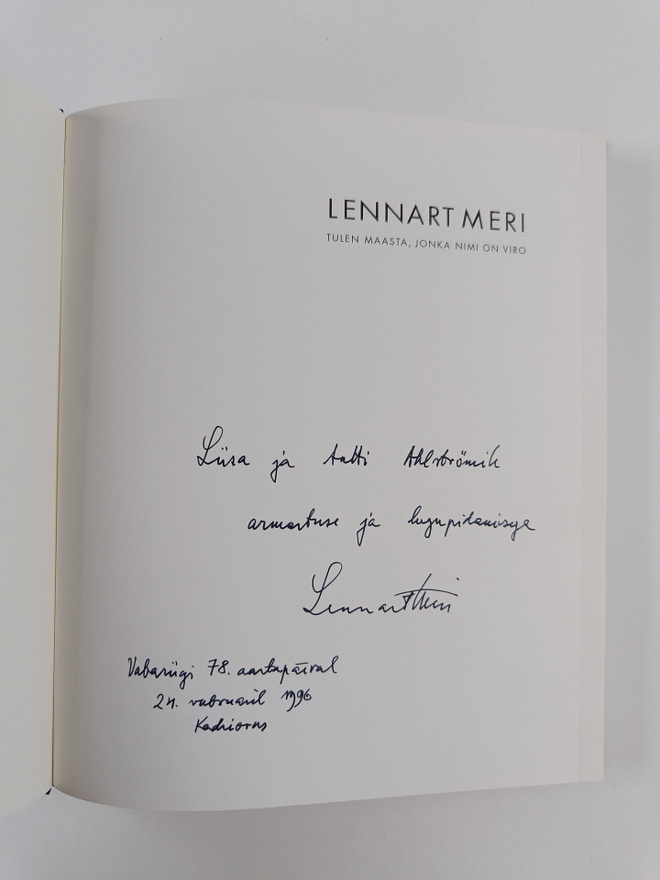 LENNART MERI
TULEN MAASTA, JONKA NIMI ON VIRO
Liisa ja Antti Ahlströmile
armastuse ja lugupidamisega
Lennart Meri
Vabariigi 78. aastapäeval
24. veebruaril 1996
Kadriorus